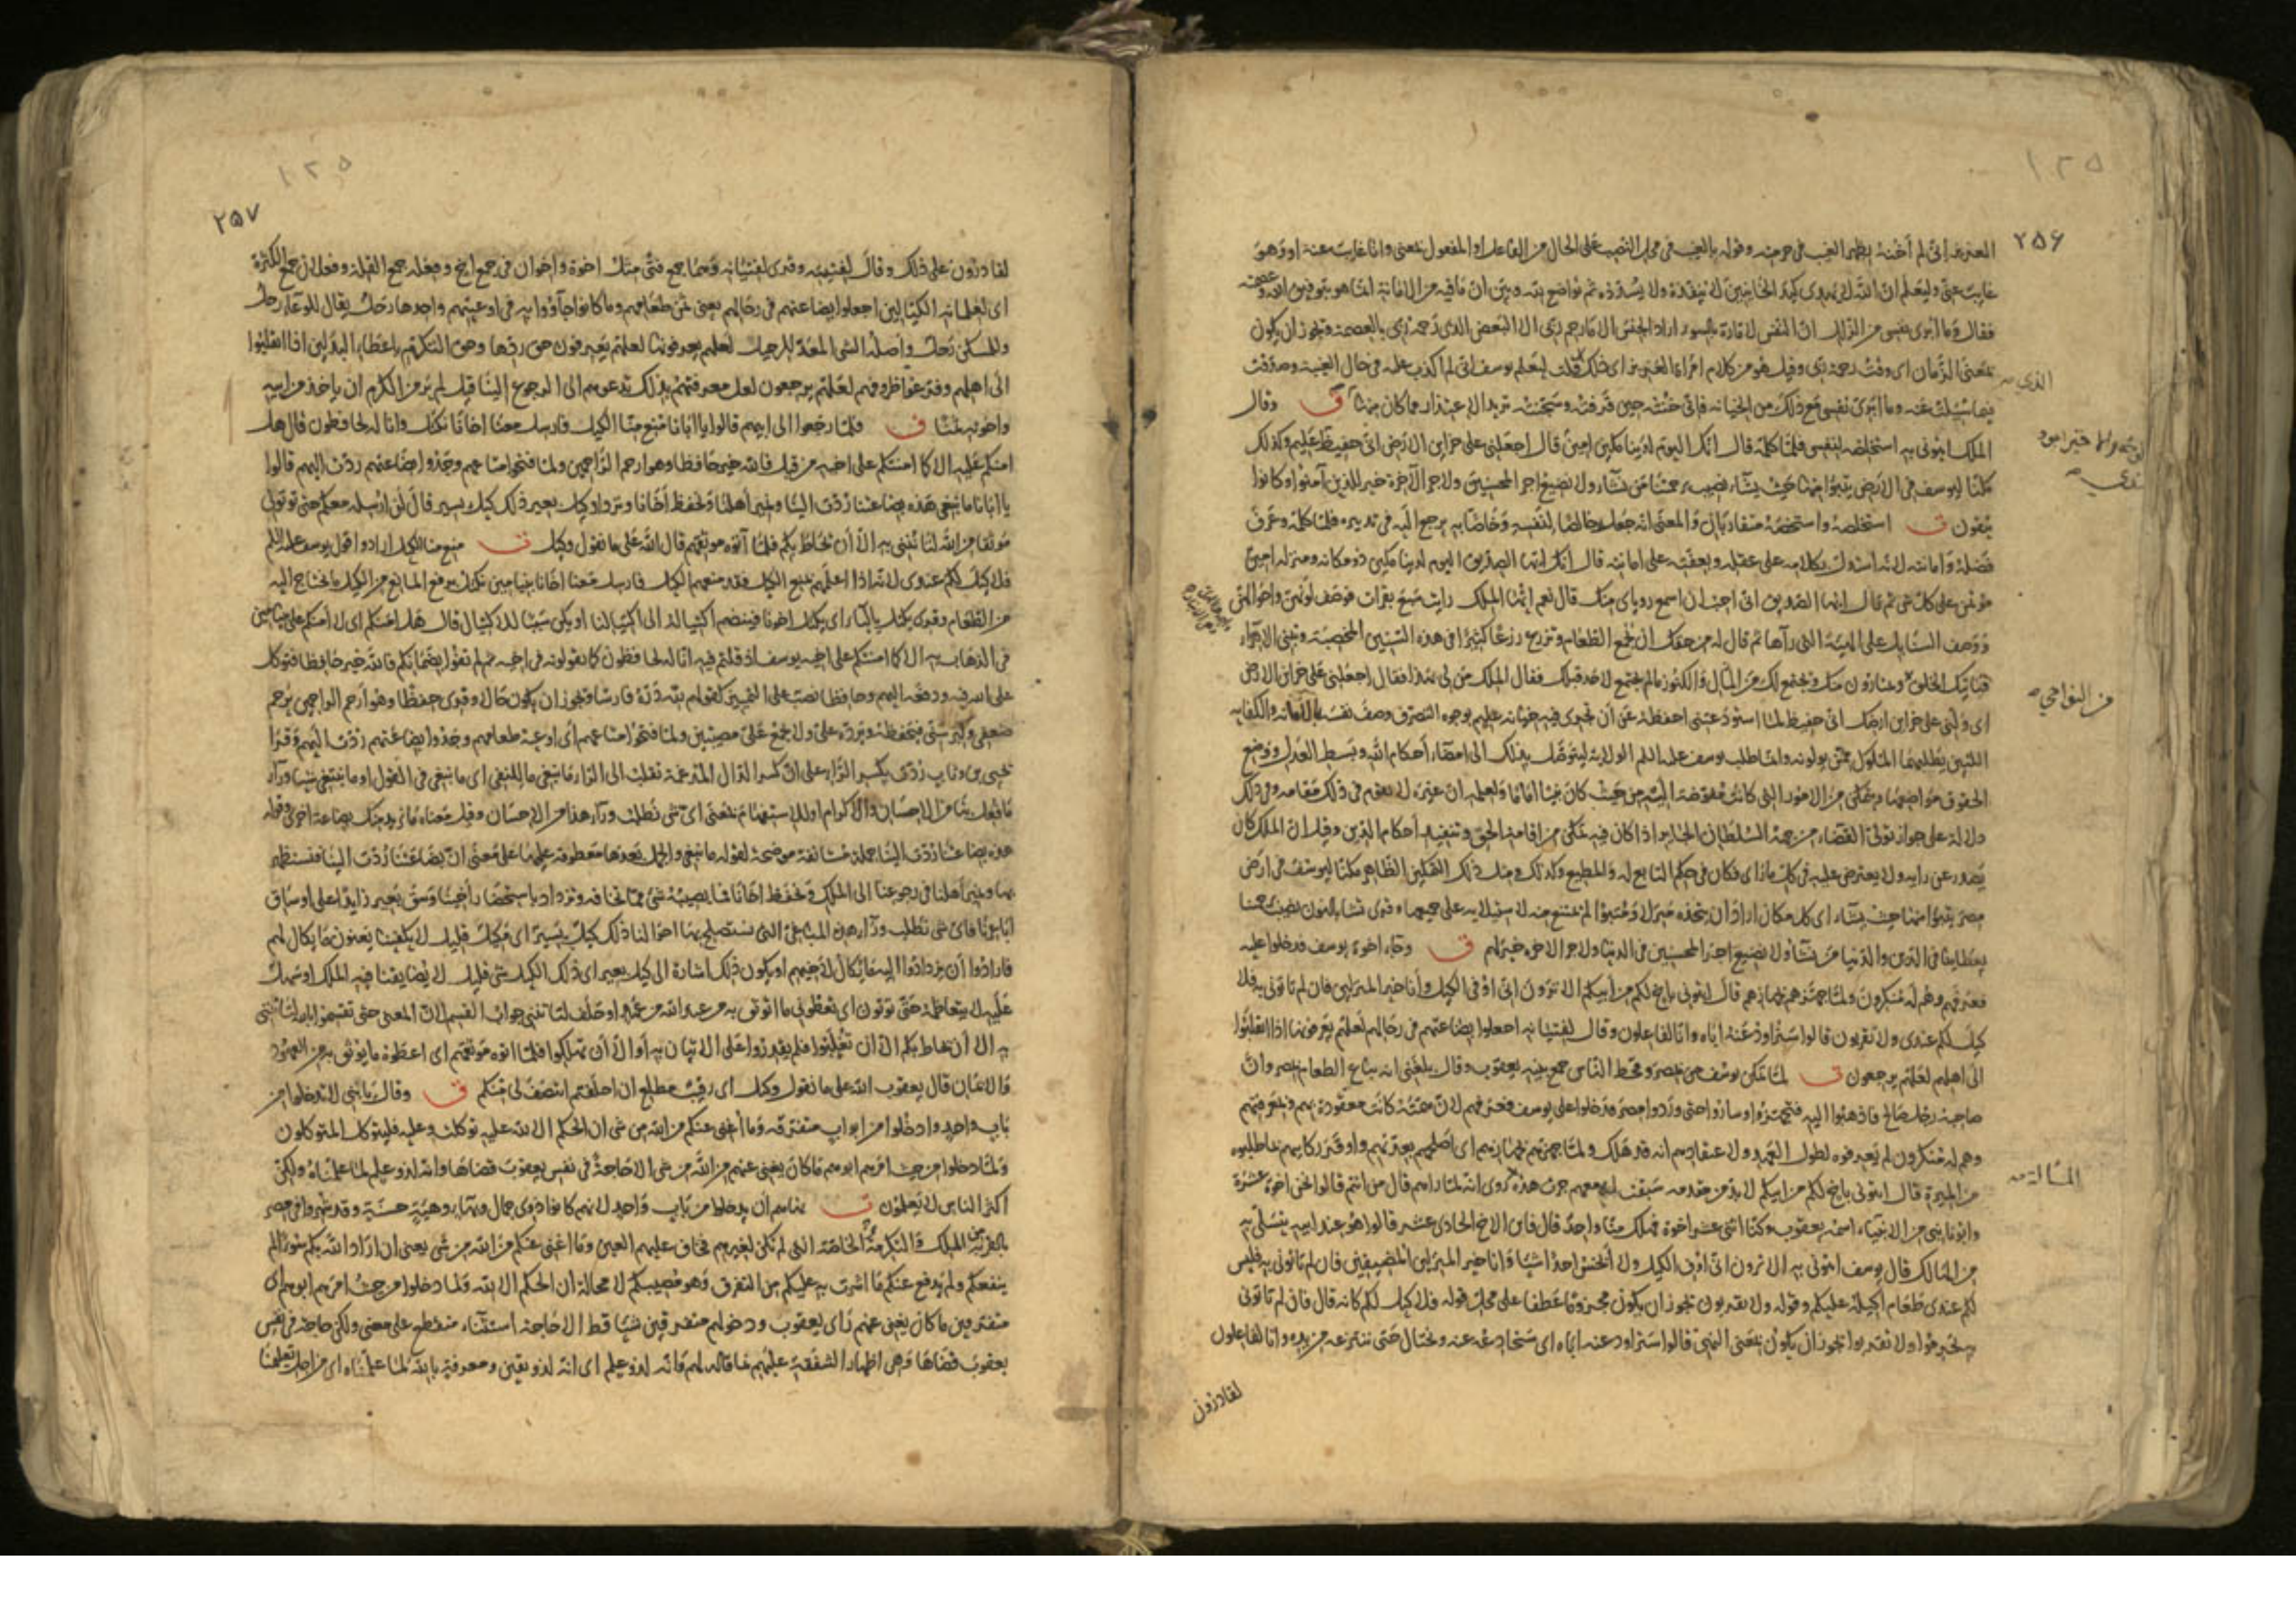 ٢٥٦
العزيز انى لم أخنه بظهر الغيب فى حرمته وقوله بالغيب فى محل النصب على الحال من الفاعل او المفعول بمعنى وانا غايب عنه او وهو
غايب عنى وليعلم ان الله لا يهدى كيد الخاينين لا ينفذه ولا يسدده ثم تواضع لله وبين ان ما فيه من الامانة انما هو بتوفيق الله وعصمته
فقال وما ابرى نفسى من الزلل ان النفس لامارة بالسوء اراد الجنس الا ما رحم ربى الا البعض الذى رحمه ربى بالعصمة ويجوز ان يكون
بمعنى الزمان اى وقت رحمة ربى وقيل هو من كلام امراة العزيز اى ذلك قلت ليعلم يوسف انى لم اكذب عليه فى حال الغيبة وصدقت
فيما سئلت عنه وما ابرى نفسى مع ذلك من الخيانة فانى خنته حين قرفته وسجنته تريد الاعتذار مما كان منها ق وقال
الملك ايتونى به استخلصه لنفسى فلما كلمه قال انك اليوم لدينا مكين امين قال اجعلنى على خزاين الارض انى حفيظ عليم وكذلك
مكنا ليوسف فى الارض يتبوا منها حيث يشاء نصيب برحمتنا من نشاء ولا نضيع اجر المحسنين ولاجر الآخرة خير للذين آمنوا وكانوا
يتقون ق استخلصه واستخصه متقاربان والمعنى انه جعله خالصا لنفسه وخاصا به يرجع اليه فى تدبيره فلما كلمه وعرف
فضله وامانته لانه استدل بكلامه على عقله وبعفته على امانته قال انك ايها الصديق اليوم لدينا مكين ذو مكانة ومنزلة امين
مؤتمن على كل شى ثم قال ايها الصديق انى احب ان اسمع روياى منك قال نعم ايها الملك رايت سبع بقرات فوصف لونهن واحوالهن
ووصف السنابل على الهيئة التى رآها ثم قال له من حقك ان تجمع الطعام وتزرع زرعا كثيرا فى هذه السنين المخصبة وتبنى الاهراء
فياتيك الخلق ويمتارون منك ويجتمع لك من المال والكنوز ما لم يجتمع لاحد قبلك فقال الملك من لى بهذا فقال اجعلنى على خزاين الارض
اى ولنى على خزاين ارضك انى حفيظ لما استودعتنى احفظه عن ان تجرى فيه خيانة عليم بوجوه التصرف وصف نفسه بالامانة والكفاية
اللتين يطلبهما الملوك ممن يولونه وانما طلب يوسف عليه السلام الولاية ليتوصل بذلك الى امضاء أحكام الله وبسط العدل ووضع
الحقوق مواضعها ويتمكن من الامور التى كانت مفوضة اليه من حيث كان نبيا اماما ولعلمه ان غيره لا يقوم فى ذلك مقامه وفى ذلك
دلالة على جواز تولى القضاء من جهة السلطان الجاير اذا كان فيه تمكن من اقامة الحق وتنفيذ أحكام الدين وقيل ان الملك كان
يصدر عن رايه ولا يعترض عليه فى كل ما راى فكان فى حكم التابع له والمطيع وكذلك ومثل ذلك التمكين الظاهر مكنا ليوسف فى ارض
مصر يتبوا منها حيث يشاء اى كل مكان اراد ان يتخذه منزلا ومتبوا لم يمتنع منه لاستيلائه على جميعها وقرى نشاء بالنون نصيب برحمتنا
بعطاينا فى الدين والدنيا من نشاء ولا نضيع اجر المحسنين فى الدنيا ولاجر الاخرة خير لهم ق وجاء اخوة يوسف فدخلوا عليه
فعرفهم وهم له منكرون ولما جهزهم بجهازهم قال ايتونى باخ لكم من ابيكم الا ترون انى اوفى الكيل وأنا خير المنزلين فان لم تاتونى به فلا
كيل لكم عندى ولا تقربون قالوا سنراود عنه اباه وانا لفاعلون وقال لفتيانه اجعلوا بضاعتهم فى رحالهم لعلهم يعرفونها اذا انقلبوا
الى اهلهم لعلهم يرجعون ق لما تمكن يوسف من مصر وقحط الناس جمع بنيه يعقوب وقال بلغنى انه يباع الطعام بمصر وان
صاحبه رجل صالح فاذهبوا اليه فتجهزوا وساروا حتى وردوا مصر فدخلوا على يوسف فعرفهم لان همته كانت معقودة بهم وبمعرفتهم
وهم له منكرون لم يعرفوه لطول العهد ولاعتقادهم انه قد هلك ولما جهزهم بجهازهم اى اصلحهم بعدتهم واوقر ركابهم بما طلبوه
من الميرة قال ايتونى باخ لكم من ابيكم لا بد من مقدمة سبقت له معهم جرت هذه روى انه لما رآهم قال من انتم قالوا نحن اخوة عشرة
وابونا نبى من الانبياء اسمه يعقوب وكنا اثنى عشر اخوة فهلك منا واحد قال فاين الاخ الحادى عشر قالوا هو عند ابيه يتسلى به
من الهالك قال يوسف ايتونى به الا ترون انى اوفى الكيل ولا أبخس احدا شيا وانا خير المنزلين المضيفين فان لم تاتونى به فليس
لكم عندى طعام اكيله عليكم وقوله ولا تقربون يجوز ان يكون مجزوما عطفا على محل قوله فلا كيل لكم كانه قال فان لم تاتونى
به تحرموا ولا تقربوا ويجوز ان يكون بمعنى النهى قالوا سنراود عنه اباه اى سنخادعه عنه ونحتال حتى ننتزعه من يده وانا لفاعلون
لقادرون
الذى
من النواحى
المسالة
١٢٥
٢٥٧
١٢٥
لقادرون على ذلك وقال لفتيته وقرى لفتيانه وهما جمع فتى مثل اخوة واخوان فى جمع اخ وفعلة جمع القلة وفعلان جمع الكثرة
اى لغلمانه الكيالين اجعلوا بضاعتهم فى رحالهم يعنى ثمن طعامهم وما كانوا جآؤوا به فى اوعيتهم واحدها رحل يقال للوعاء رحل
وللمسكن رحل واصله الشى المعد للرحيل لعلهم يعرفونها لعلهم يعرفون حق ردها وحق التكرم باعطاء البدلين اذا انقلبوا
الى اهلهم وفرغوا ظروفهم لعلهم يرجعون لعل معرفتهم بذلك تدعوهم الى الرجوع الينا قيل لم ير من الكرم ان ياخذ من ابيه
واخوته ثمنا ق فلما رجعوا الى ابيهم قالوا يا ابانا منع منا الكيل فارسل معنا اخانا نكتل وانا له لحافظون قال هل
امنكم عليه الا كما امنتكم على اخيه من قبل فالله خير حافظا وهو ارحم الراحمين ولما فتحوا متاعهم وجدوا بضاعتهم ردت اليهم قالوا
يا ابانا ما نبغى هذه بضاعتنا ردت الينا ونمير أهلنا ونحفظ أخانا ونزداد كيل بعير ذلك كيل يسير قال لن ارسله معكم حتى توتون
موثقا من الله لتاتننى به الا أن يحاط بكم فلما آتوه موثقهم قال الله على ما نقول وكيل ق منع منا الكيل ارادوا قول يوسف عليه السلام
فلا كيل لكم عندى لانه اذا اعلمهم بمنع الكيل فقد منعهم الكيل فارسل معنا اخانا بنيامين نكتل برفع المانع من الكيل ما نحتاج اليه
من الطعام وقرى يكتل بالياء اى يكتل اخونا فينضم أكتياله الى اكتيالنا او يكن سببا للاكتيال قال هل امنكم اى لا أمنكم على بنيامين
فى الذهاب به الا كما امنتكم على اخيه يوسف اذ قلتم فيه انا له لحافظون كما تقولونه فى اخيه ثم لم تفوا بضمانكم فالله خير حافظا فتوكل
على الله فيه ودفعه اليهم وحافظا نصب على التمييز كقولهم لله دره فارسا ويجوز ان يكون حالا وقرى حفظا وهو أرحم الراحمين يرحم
ضعفى وكبر سنى فيحفظه ويرده على ولا يجمع على مصيبتين ولما فتحوا متاعهم أى اوعية طعامهم وجدوا بضاعتهم ردت اليهم وقرأ
يحيى بن وثاب ردت بكسر الراء على ان كسر الدال المدغمة نقلت الى الراء ما نبغى ما للنفى اى ما نبغى فى القول او ما نبتغى شيا ورآء
ما فعل بنا من الاحسان والاكرام او للاستفهام بمعنى اى شى نطلب ورآء هذا من الاحسان وقيل معناه ما نريد منك بضاعة اخرى وقوله
هذه بضاعتنا ردت الينا جملة مستانفة موضحة لقوله ما نبغى والجمل بعدها معطوفة عليها على معنى ان بضاعتنا ردت الينا فنستظهر
بها ونمير أهلنا فى رجوعنا الى الملك ونحفظ اخانا فما يصيبه شى مما تخافه ونزداد باستصحاب أخينا وسق بعير زايدا على اوساق
اباعرنا فاى شى نطلب ورآء هذه المباغى التى نستصلح بها احوالنا ذلك كيل يسير اى مكيل قليل لا يكفينا يعنون ما يكال لهم
فارادوا أن يزدادوا اليه ما يكال لاخيهم او يكون ذلك اشارة الى كيل بعير اى ذلك الكيل شى قليل لا يضايقنا فيه الملك او سهل
عليه لا يتعاظمه حتى توتون اى تعطونى ما اتوثق به من عند الله من عهد او حلف لتاتننى جواب القسم لان المعنى حتى تقسموا بالله لتاتننى
به الا أن يحاط بكم الا ان تغلبوا فلم يقدروا على الاتيان به أو الا أن تهلكوا فلما اتوه موثقهم اى اعطوه ما يوثق به من العهود
والايمان قال يعقوب الله على ما نقول وكيل اى رقيب مطلع ان اخلفتم انتصف لى منكم ق وقال يا بنى لا تدخلوا من
باب واحد وادخلوا من ابواب متفرقة وما أغنى عنكم من الله من شى ان الحكم الا لله عليه توكلت وعليه فليتوكل المتوكلون
ولما دخلوا من حيث امرهم ابوهم ما كان يغنى عنهم من الله من شى الا حاجة فى نفس يعقوب قضاها وانه لذو علم لما علمناه ولكن
اكثر الناس لا يعلمون ق نهاهم ان يدخلوا من باب واحد لانهم كانوا ذوى جمال وبهاء وهيئة حسنة وقد شهروا فى مصر
بالقربة من الملك والتكرمة الخاصة التى لم تكن لغيرهم فخاف عليهم العين وما اغنى عنكم من الله من شى يعنى ان اراد الله بكم سوءا لم
ينفعكم ولم يدفع عنكم ما اشرت به عليكم من التفرق وهو مصيبكم لا محالة ان الحكم الا لله ولما دخلوا من حيث امرهم ابوهم اى
متفرقين ما كان يغنى عنهم راى يعقوب ودخولهم متفرقين شيا قط الا حاجة استثناء منقطع على معنى ولكن حاجة فى نفس
يعقوب قضاها وهى اظهار الشفقة عليهم بما قاله لهم وانه لذو علم اى انه لذو يقين ومعرفة بالله لما علمناه اى من اجل تعليمنا